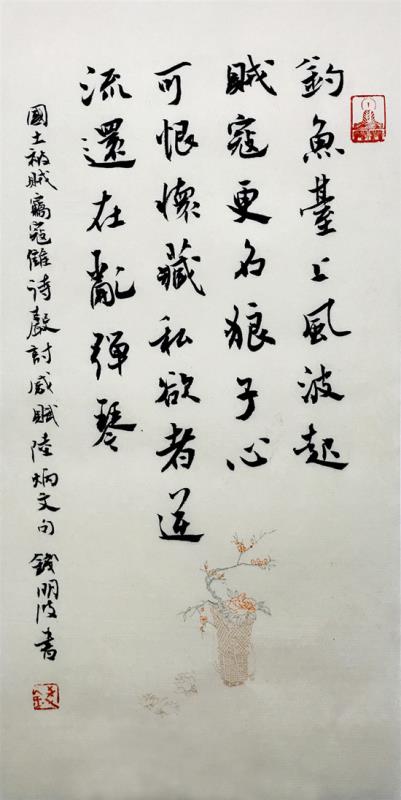 釣魚臺上風波起
賊寇更名狼子心
可恨懷藏私欲者逆
流還在亂彈琴
國土被賊竊寇雖詩聲討感賦陸炳文句錢明波書